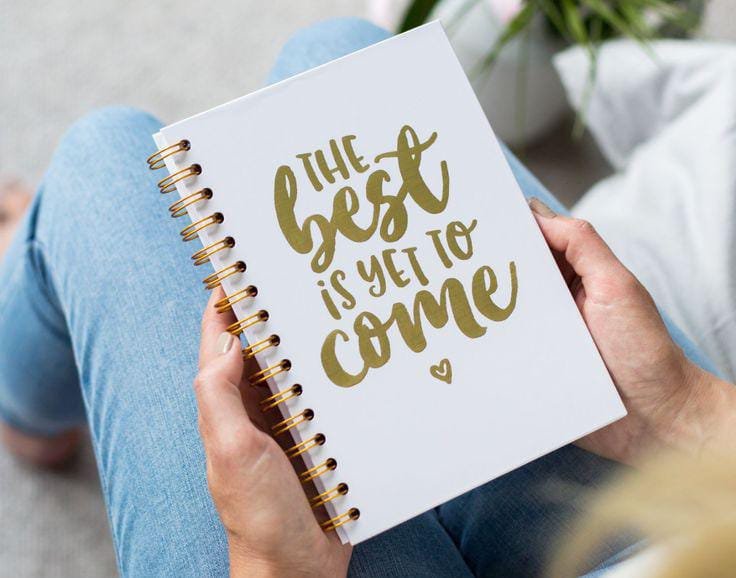 THE
best
IS YET TO
come